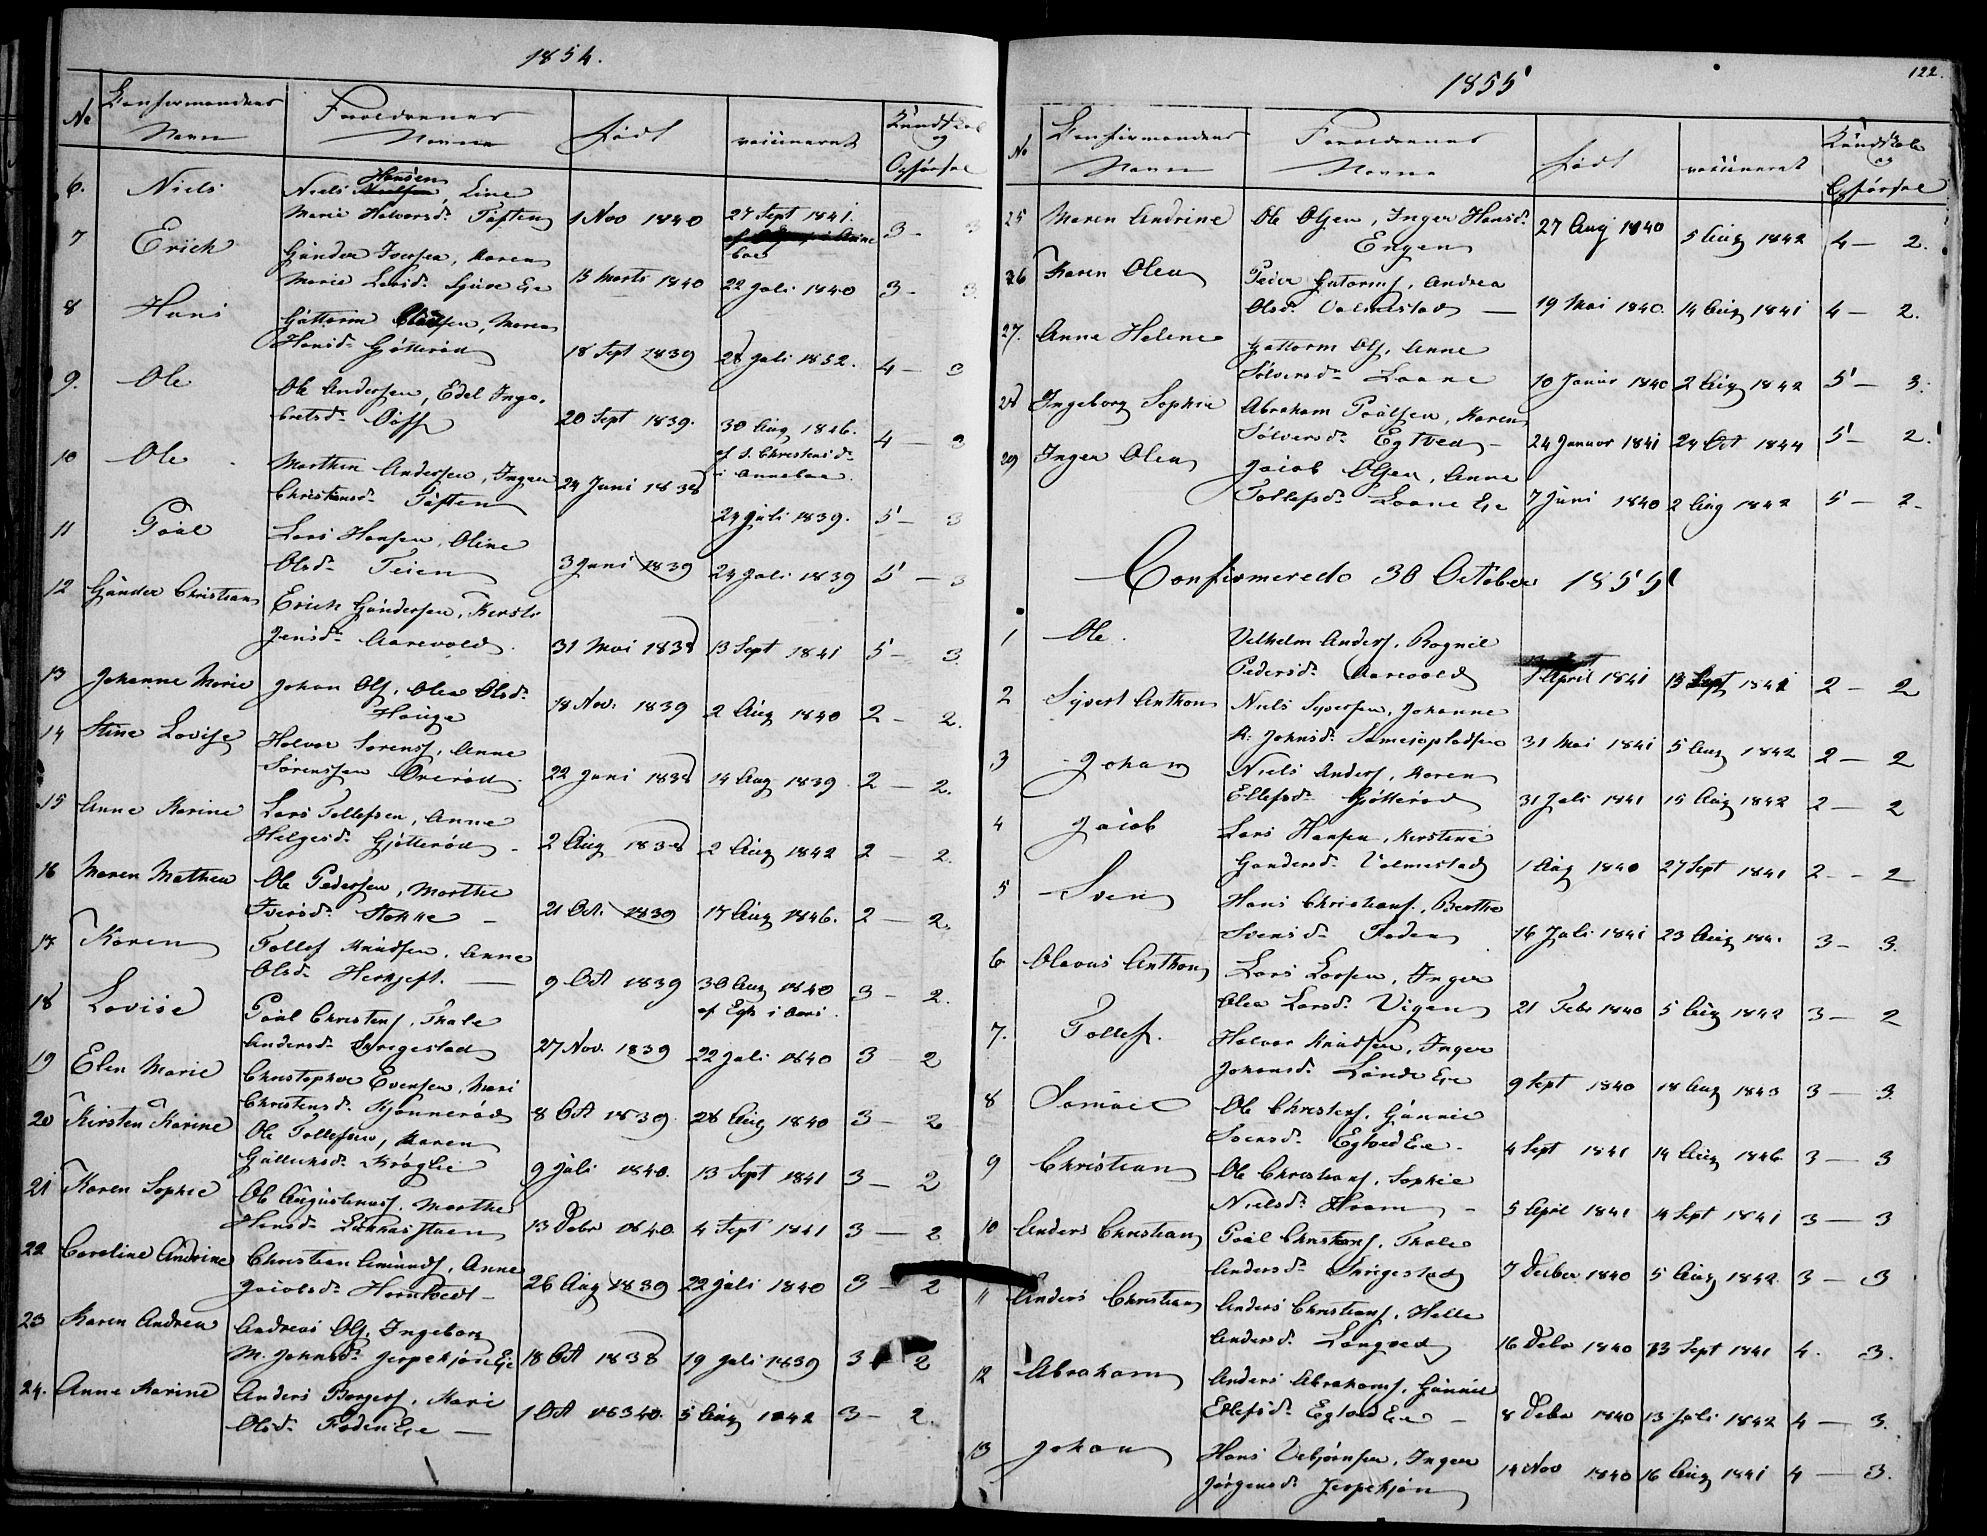 1854.
No
Konfirmandens
Navn
Forældrenes
Navne
Født
vaccineret
Kundskab
og
Opførsel
6. Niels
Niels Hansen, Line
Marie Halvorsd. Toften 1 Nov 1840 27 Sept 1841. 3 - 3
7 Erich
Gunder Iversen, Karen
Marie Larsd. Eie 13 Marts 1840 22 Juli 1840 3 - 3.
8 Hans
Guttorm Olsen, Maren
Hansd. Gjøtterød 18 Sept 1839 28 Juli 1852. 4 - 3
9. Ole
Ole Andersen, Edel Inge-
bretsd. 20 Sept 1839. 30 Aug 1846. 4 - 3
af S. Christensd.
i Annebae.
10 Ole
Marthin Andersen, Inger
Christensd. Toften 24 Juni 1838 24 Juli 1839. 5 - 3
11 Poul
Lars Hansen, Oline
Olsd. Teien 3 Juni 1839 24 Juli 1839 5 - 3
12 Gunder Christian
Erich Gundersen, Kirsti
Jensd. Aarevold. 31 Mai 1838 13 Sept 1841 5 - 3.
13 Johanne Marie
Johan Ols, Olea Olsd.
Houge 18 Nov. 1839 2 Aug 1840 2 - 2.
14 Stine Lovise
Halvor Sørens, Anne
Sørenssen Ørerød. 22 Juni 1838 14 Aug 1839 2 - 2.
15 Anne Karine
Lars Tollefsen, Anne
Helgesd. Gjøtterød - 2 Aug 1838 2 Aug 1842 2 - 2.
16 Maren Mathea
Ole Pedersen, Marthe
Iversd. Stokke - 21 Oct. 1839 17 Aug 1846. 2 - 2.
17 Karen
Tollef Knudsen, Anne
Olsd. Herkjeft. 9 Oct 1839 30 Aug 1840 3 - 2.
af Egs i Aarei.
18 Lovise
Poul Christens, Thale
Andersd. Skregestad 27 Nov. 1839 22 Juli 1840 3 - 2
19 Elen Marie
Christopher Evensen, Mari
Christensd. Kjønnerød 8 Oct 1839. 28 Aug 1840 3 - 2
20 Kirsten Karine
Ole Tollefsen, Karen
Gulliksd. Kroglie 9 Juli 1840. 13 Sept 1841 3 - 2
21 Karen Sophie
Ole Augustinus, Marthe
Hansd. 13 Febr 1840. 4 Sept 1841 3 - 2
22 Caroline Andrine
Christian Amunds, Anne
Jacobsd. Horntvedt - 26 Aug 1839 22 Juli 1840 3 - 2
23 Karen Andrea
Andreas Ols, Ingeborg
M. Johnsd. Jerpekjøn Eie 18 Oct 1838 19 Juli 1839 3 - 2
24. Anne Karine
Anders Borgers, Kari
Olsd. Foden Eie - 1 Oct 1840. 5 Aug 1842 3 - 2.
122.
1855
No
Konfirmandens
Navn
Forældrenes
Navne
Født
vaccineret
Kundskab
og
Opførsel
25 Maren Andrine
Ole Olsen, Inger Hansd.
Engen 27 Aug 1840 5 Aug 1842 4 - 2.
26 Karen Olea
Peder Gutorms, Andrea
Olsd. Valmestad - 19 Mai 1840. 14 Aug 1841 4 - 2.
27. Anne Helene
Guttorm Ols, Anne
Sølversd. Laane 10 Januar 1840 2 Aug 1842 5 - 3.
28 Ingeborg Sophie
Abraham Poulsen, Karen
Sølversd. Egtved - 24 Januar 1841 24 Oct 1844 5 - 2.
29 Inger Olea
Jacob Olsen, Anne
Tollefsd. Laane Eie 7 Juni 1840 2 Aug 1842 5 - 2.
Confirmerede 30 October 1855
1 Ole.
Vilhelm Anders, Rognil
Pedersd. Aarevold April 1841 13 Sept 1841 2 - 2
2 Sivert Anthon
Niels Syversen, Johanne
K. Johnsd. 31 Mai 1841 5 Aug 1842 2 - 2
3 Johan
Niels Anders, Karen
Ellefsd. Gjøtterød 31 Juli 1841 15 Aug 1842 2 - 2
4 Jacob
Lars Hansen, Kirstine
Gundersd. Valmestad 1 Aug 1840 27 Sept 1841 2 - 2
5 Sven
Hans Christians, Berthe
Svensd. Foden 16 Juli 1841 23 Aug 184. 3 - 3.
6 Olavus Anthon
Lars Larsen, Inger
Olea Larsd. Vigen 21 Febr 1840 5 Aug 1842 3 - 2
7. Tollef.
Halvor Knudsen, Inger
Johansd. Lunde Eie 9 Sept 1840 18 Aug 1843 3 - 3.
8 Samuel
Ole Christens, Gunnil
Svensd. Egtved Eie. 4 Sept 1841 14 Aug 1846 3 - 3
9 Christian
Ole Christians, Sophie
Nielsd. Hvam - 5 April 1841 14 Sept 1841 3 - 3
10 Anders Christian
Poul Christens, Thale
Andersd. Skrigestad 7 Decber 1840 5 Aug 1842 3 - 3
11 Anders Christian
Anders Christians, Helle
Andersd. Langved 16 Debr 1840 13 Sept 1841 4. 3.
12 Abraham
Anders Abrahams, Gunnil
Ellefsd. Egtved Eie - 8 Debr 1840 13 Juli 1842 4 - 3.
13 Johan
Hans Vebjørnsen, Inger
Jørgensd. Jerpekjøn 14 Nov 1840 16 Aug 1841 4 - 3.